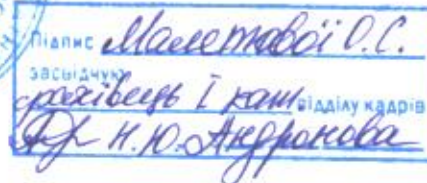 Підпис Малетової О.С.
засвідчую
фахівець І кат. відділу кадрів
Н.Ю. Андронова